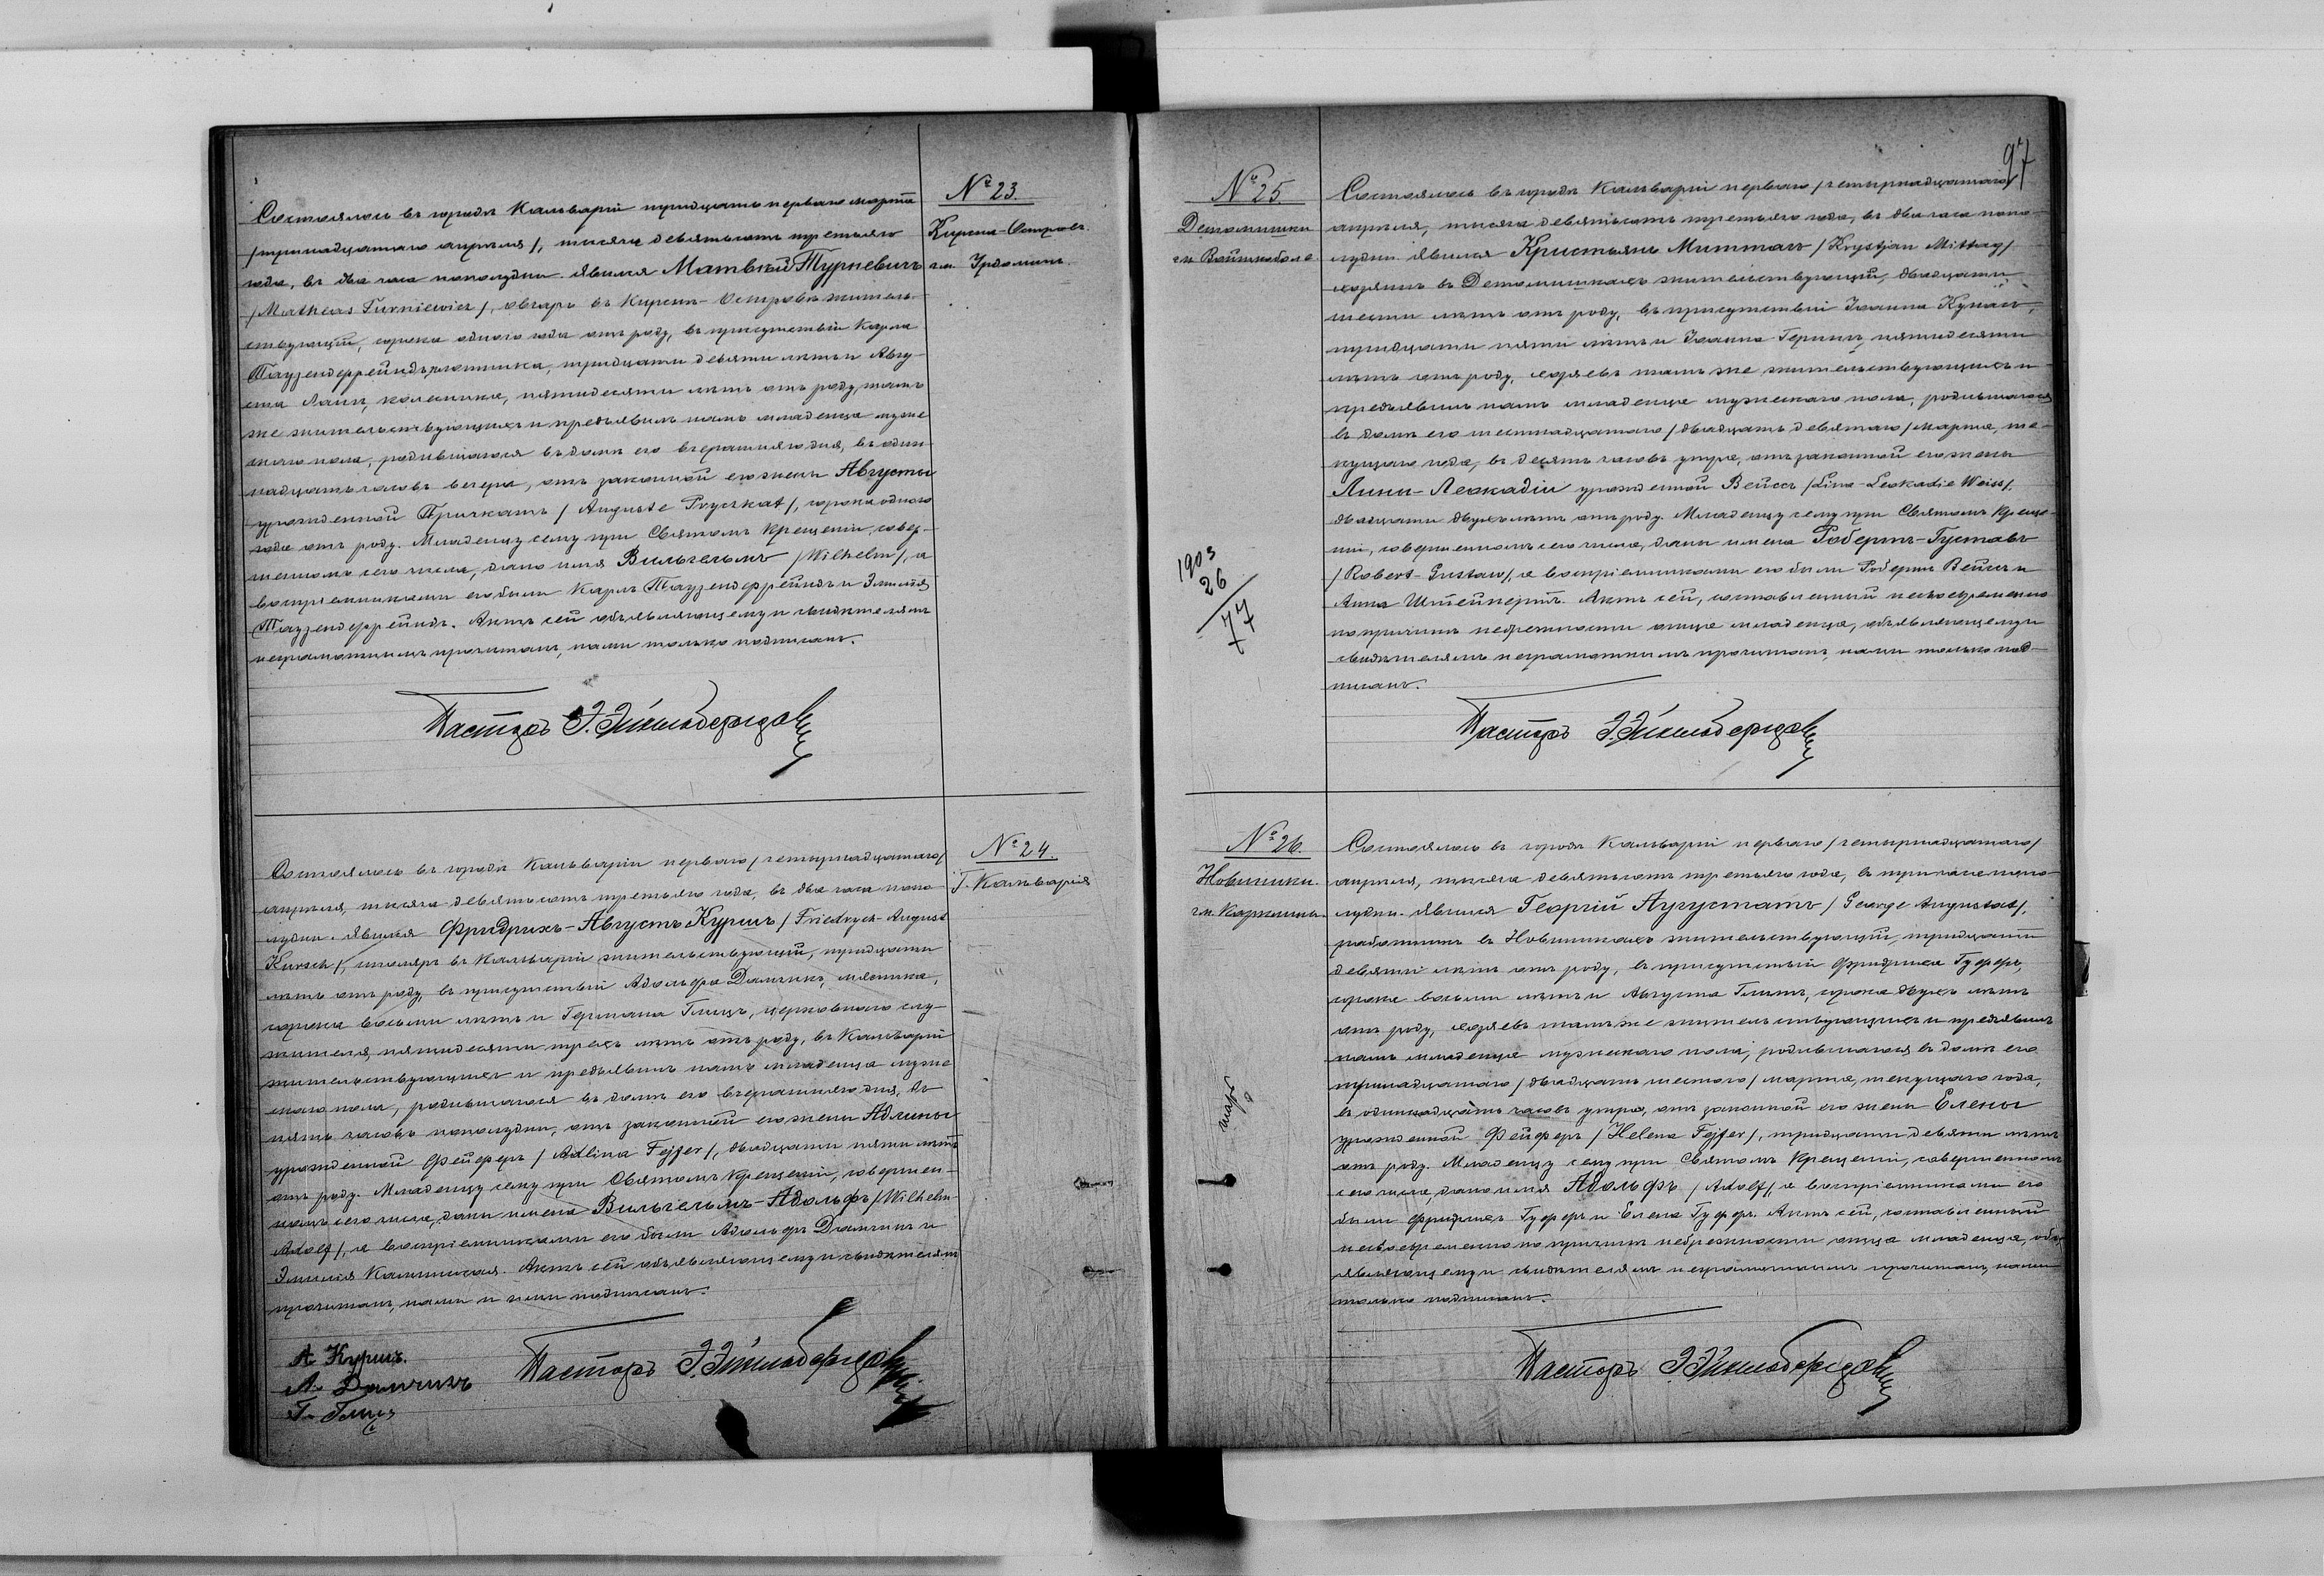 № 23.
Кирсна-Островъ
гм. Урдоминъ
Состоялось въ городѣ Кальваріи тридцать перваго марта
/тринадцатаго апрѣля/, тысяча девятьсотъ третьяго
года, въ два часа пополудни. Явился Матвѣй Турневичъ
/Matheas Turniewicz/, овчаръ въ Кирснѣ-Островѣ житель-
ствующій, сорока одного года отъ роду, въ присутствіи Карла
Таузендфрейндъ, плотника, тридцати девяти лѣтъ и Авгу-
ста Лаинъ, колесника, пятидесяти лѣтъ отъ роду, тамъ
же жительствующихъ и предъявилъ намъ младенца муже
скаго пола, родившагося въ домѣ его вчерашняго дня, въ один-
надцать часовъ вечера, отъ законной его жены Августы
урожденной Причкатъ /Auguste Pryczkat/, сорока одного
года отъ роду. Младенцу сему при Святомъ Крещеніи, совер-
шенномъ сего числа, дано имя Вильгельмъ /Wilhelm/, а
воспріемниками его были Карлъ Таузендфрейндъ и Эмилія
Таузендфрейндъ. Актъ сей объявляющему и свидѣтелямъ
неграмотнымъ прочитанъ, нами только подписанъ.
Пасторъ
№ 24.
Г. Кальварія
Состоялось въ городѣ Кальваріи перваго /четырнадцатаго/
апрѣля, тысяча девятьсотъ третьяго года, въ два часа попо-
лудни. Явился Фридрихъ-Августъ Куршъ /Friedrych-August
Kursch/, столяръ въ Кальваріи жительствующій, тридцати
лѣтъ отъ роду, въ присутствіи Адольфа Дамчикъ, мясника,
сорока восьми лѣтъ и Германа Глицъ, церковнаго слу-
жителя, пятидесяти трехъ лѣтъ отъ роду, въ Кальваріи
жительствующихъ и предъявилъ намъ младенца муже
скаго пола, родившагося въ домѣ его вчерашняго дня, въ
пять часовъ пополудни, отъ законной его жены Адлины
урожденной Фейферъ /Adlina Fejfer/, двадцати пяти лѣтъ
отъ роду. Младенцу сему при Святомъ Крещеніи, совершен-
номъ сего числа, даны имена Вильгельмъ-Адольфъ /Wilhelm-
Adolf/, а воспріемниками его были Адольфъ Дамчикъ и
Эмилія Калинская. Актъ сей объявляющему и свидѣтелямъ
прочитанъ, нами и ими подписанъ.
А Куршъ.
А. Дамчикъ
Г. Глицъ
Пасторъ
97
№ 25.
Детомишки
гм. Войткобола
1903
26
77
Состоялось въ городѣ Кальваріи перваго /четырнадцатаго/
апрѣля, тысяча девятьсотъ третьяго года, въ два часа попо-
лудни. Явился Кристьянъ Миттагъ /Krystjan Mittag/
хозяинъ въ Детомишкахъ жительствующій, двадцати
шести лѣтъ отъ роду, въ присутствіи Іоанна Кунатъ,
тридцати пяти лѣтъ и Іоанна Геринъ, пятидесяти
лѣтъ отъ роду, хозяевъ тамъ же жительствующихъ и
предъявилъ намъ младенца мужескаго пола, родившагося
въ домѣ его шестнадцатаго /двадцать девятаго/ марта, те-
кущаго года, въ десять часовъ утра, отъ законной его жены
Лины-Леокадіи урожденной Вейсъ /Lina-Leokadie Weiss/,
двадцати двухъ лѣтъ отъ роду. Младенцу сему при Святомъ Креще-
ніи, совершенномъ сего числа, даны имена Робертъ-Густавъ
/Robert-Gustaw/, а воспріемниками его были Робертъ Вейсъ и
Анна Штейнертъ. Актъ сей, составленный несвоевременно
по причинѣ небрежности отца младенца, объявляющему и
свидѣтелямъ неграмотнымъ прочитанъ, нами только под-
писанъ.
Пасторъ
№ 26.
Новинники.
гм. Кирсшны
Состоялось въ городѣ Кальваріи перваго /четырнадцатаго/
апрѣля, тысяча девятьсотъ третьяго года, въ три часа попо-
лудни. Явился Георгій Аугустатъ /George Augustat/,
работникъ въ Новинникахъ жительствующій, тридцати
девяти лѣтъ отъ роду, въ присутствіи Фридриха Гуферъ,
сорока восьми лѣтъ и Августа Глитъ, сорока двухъ лѣтъ
отъ роду, хозяевъ тамъ же жительствующихъ и предъявилъ
намъ младенца мужескаго пола, родившагося въ домѣ его
тринадцатаго /двадцать шестого/ марта, текущаго года,
въ одиннадцать часовъ утра, отъ законной его жены Елены
урожденной Фейферъ /Helena Fejfer/, тридцати девяти лѣтъ
отъ роду. Младенцу сему при Святомъ Крещеніи, совершенномъ
сего числа, дано имя Адольфъ /Adolf/, а воспріемниками его
были Фридрихъ Гуферъ и Елена Гуферъ. Актъ сей, составленный
несвоевременно по причинѣ небрежности отца младенца, объ-
являющему и свидѣтелямъ неграмотнымъ прочитанъ, нами
только подписанъ.
Пасторъ